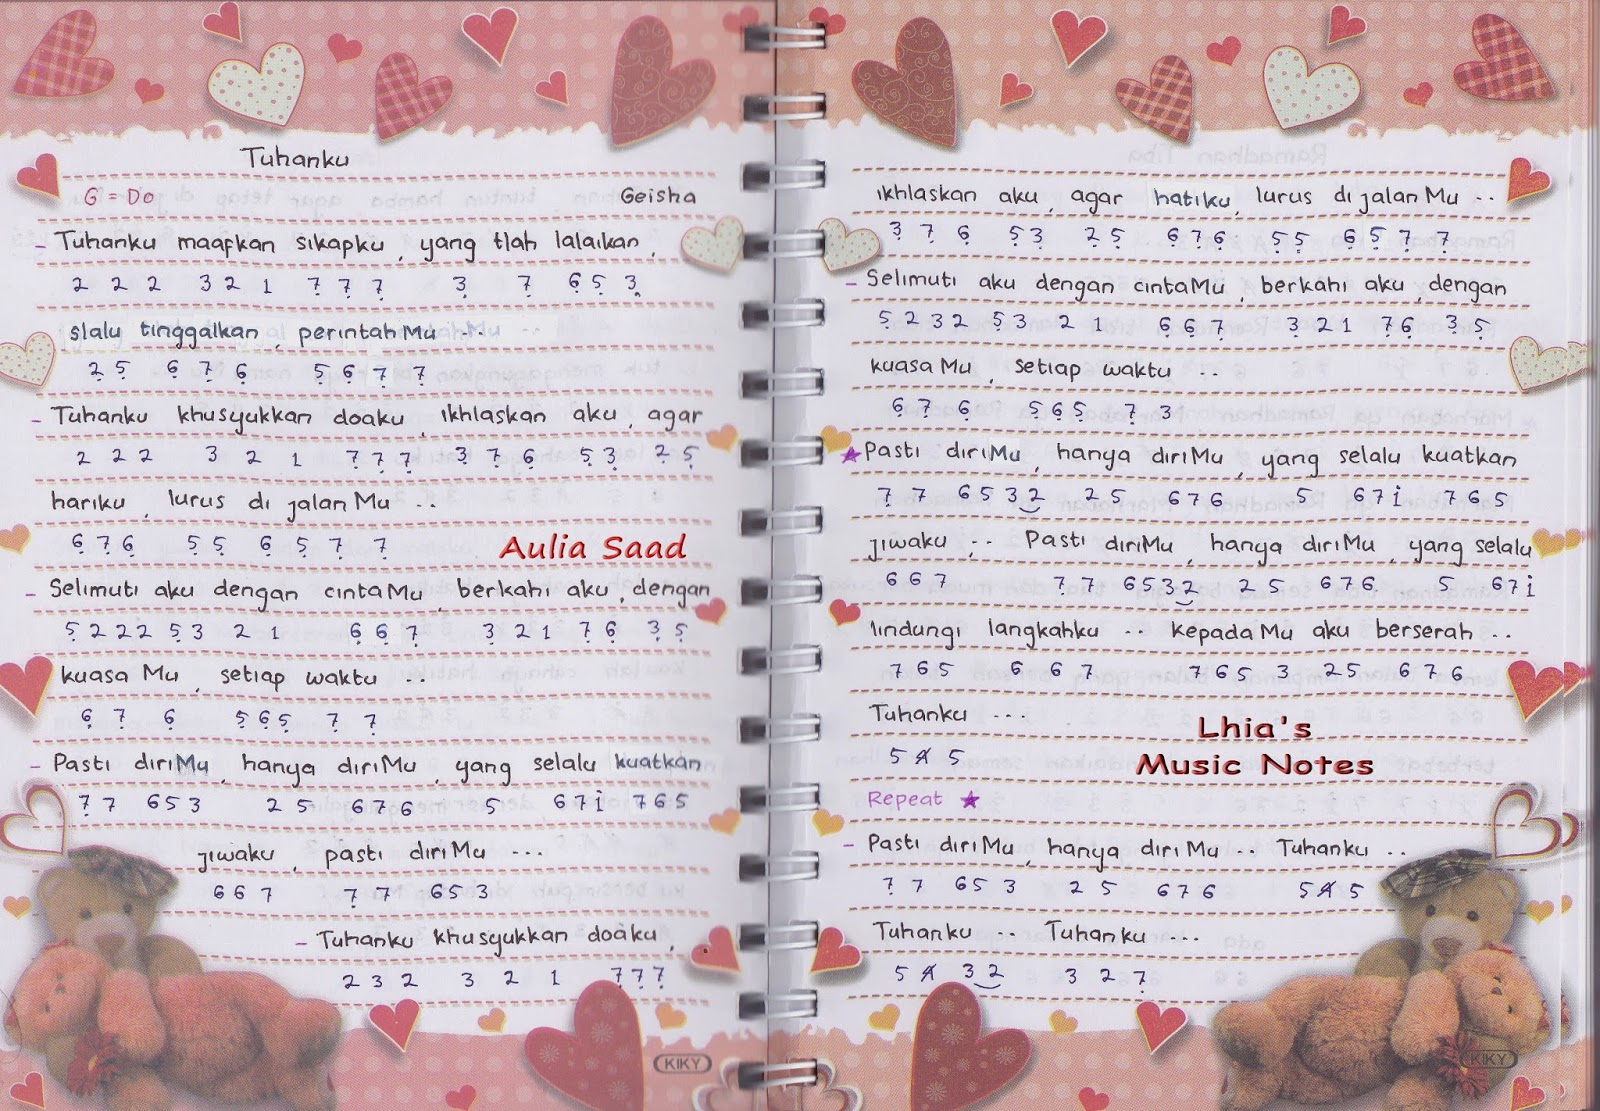 Tuhanku
G = Do Geisha
- Tuhanku maafkan sikapku, yang tlah lalaikan,
2 2 2 3 2 1 7̣ 7̣ 7̣ 3̣ 7̣ 6̣ 5̣ 3̣
slalu tinggalkan, perintahMu ..
2̣ 5̣ 6̣ 7̣ 6̣ 5̣ 6̣ 7̣ 7̣
- Tuhanku khusyukkan doaku, ikhlaskan aku, agar
2 2 2 3 2 1 7̣ 7̣ 7̣ 3̣ 7̣ 6̣ 5̣ 3̣ 2̣ 5̣
hariku, lurus di jalanMu ..
6̣ 7̣ 6̣ 5̣ 5̣ 6̣ 5̣ 7̣ 7̣
Aulia Saad
- Selimuti aku dengan cintaMu, berkahi aku, dengan
5̣ 2 2 2 5̣ 3 2 1 6̣ 6̣ 7̣ 3̣ 2 1 7̣ 6̣ 3̣ 5̣
kuasaMu, setiap waktu ..
6̣ 7̣ 6̣ 5̣ 6̣ 5̣ 7̣ 7̣
- Pasti diriMu, hanya diriMu, yang selalu kuatkan
7̣ 7 6 5 3 2 5 6 7 6 5 6 7 i 7 6 5
jiwaku, pasti diriMu ...
6 6 7 7̣ 7 6 5 3
- Tuhanku khusyukkan doaku,
2 3 2 3 2 1 7̣ 7̣ 7̣
KIKY
ikhlaskan aku, agar hatiku, lurus di jalanMu ..
3̣ 7̣ 6̣ 5̣ 3̣ 2̣ 5̣ 6̣ 7̣ 6̣ 5̣ 5̣ 6̣ 5̣ 7̣ 7̣
- Selimuti aku dengan cintaMu, berkahi aku, dengan
5̣ 2 3 2 5̣ 3 2 1 6̣ 6̣ 7̣ 3̣ 2 1 7̣ 6̣ 3̣ 5̣
kuasaMu, setiap waktu ..
6̣ 7̣ 6̣ 5̣ 6̣ 5̣ 7̣ 3
★ Pasti diriMu, hanya diriMu, yang selalu kuatkan
7̣ 7 6 5 3 2 2 5 6 7 6 5 6 7 i 7 6 5
jiwaku, .. Pasti diriMu, hanya diriMu, yang selalu
6 6 7 7̣ 7 6 5 3 2 2 5 6 7 6 5 6 7 i
lindungi langkahku .. kepadaMu aku berserah ..
7 6 5 6 6 7 7 6 5 3 2 5 6 7 6
Tuhanku ...
5 4̸ 5
Lhia's
Music Notes
Repeat ★
- Pasti diriMu, hanya diriMu .. Tuhanku ..
7̣ 7 6 5 3 2 5 6 7 6 5 4̸ 5
Tuhanku .. Tuhanku ...
5 4̸ 3 2 3 2 7̣
KIKY